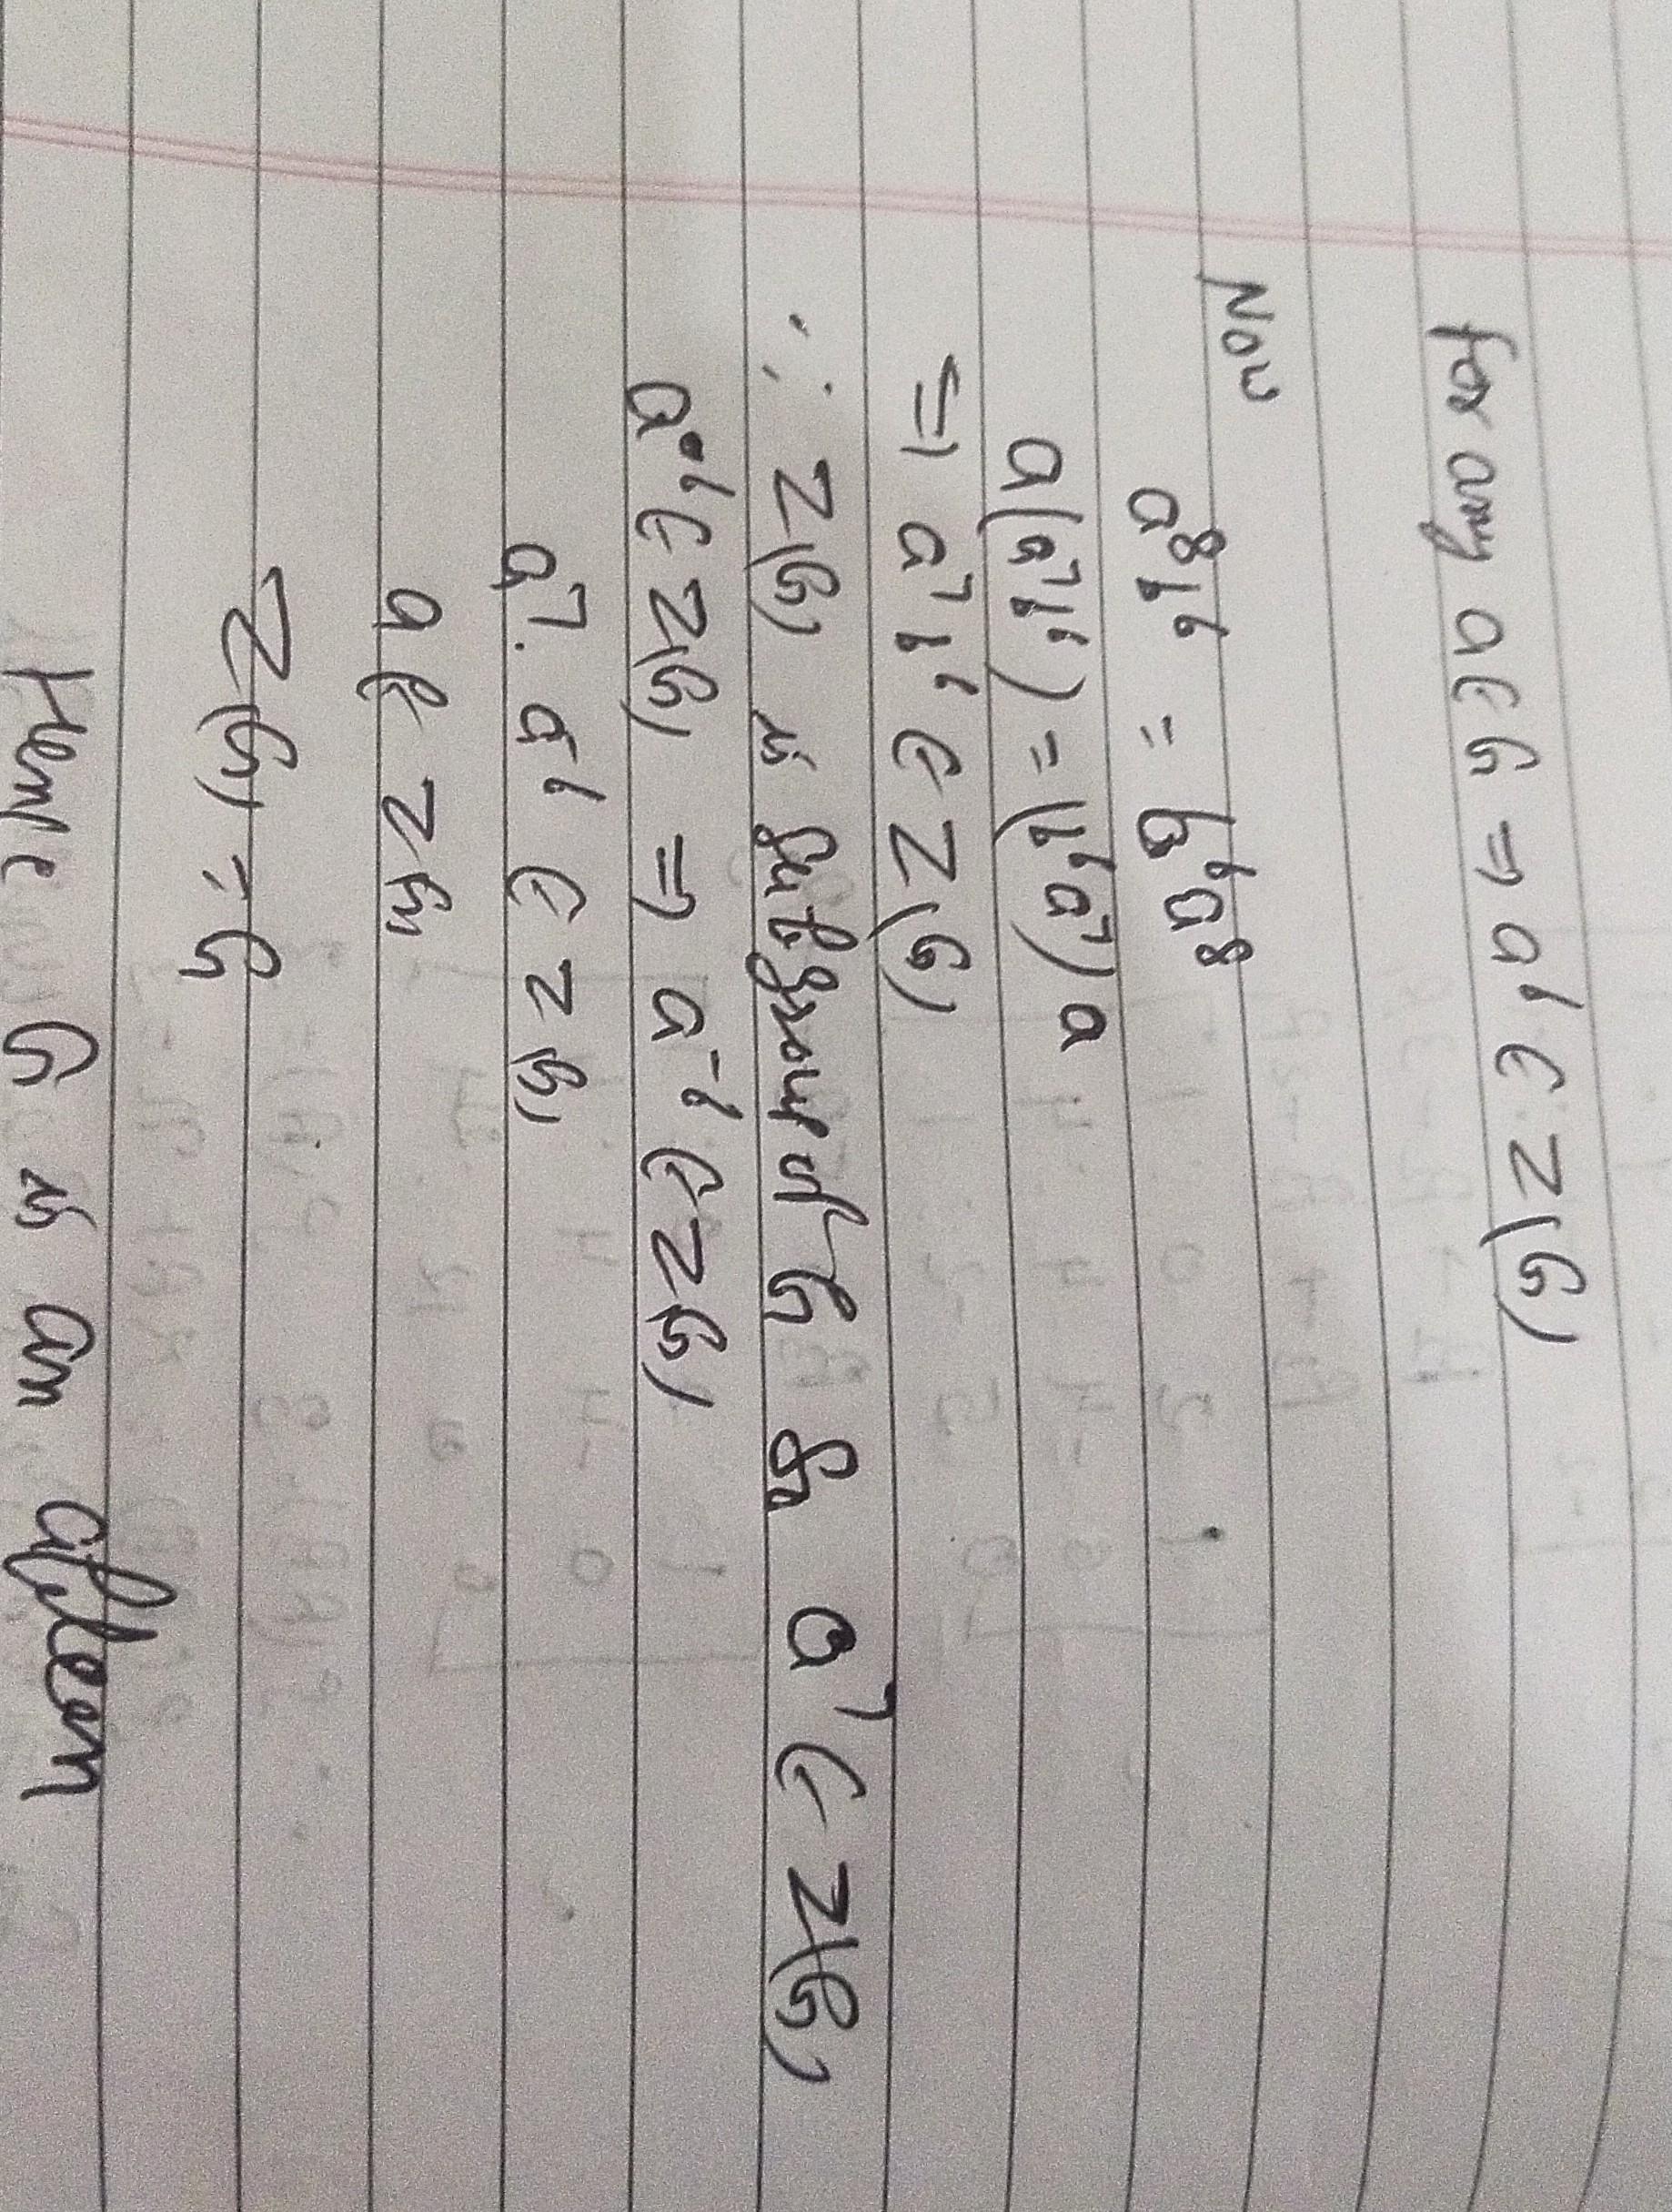 for any a ∈ G ⇒ a⁶ ∈ Z(G)
Now
a⁸b⁶ = b⁶a⁸
a(a⁷b⁶) = (b⁶a⁷)a
⇒ a⁷b⁶ ∈ Z(G)
∴ Z(G) is G & a⁷ ∈ Z(G)
a⁶ ∈ Z(G) ⇒ a⁻⁶ ∈ Z(G)
a⁷. a⁻⁶ ∈ Z(G)
a ∈ Z(G)
Z(G) = G
Hence G is an